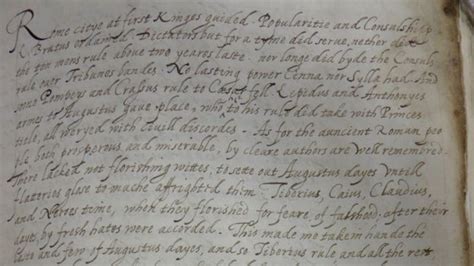 Rome citye at first Kinges guided. Popularitie and Consulship
L Brutus ordained. Dictators but for a tyme did serve, nether did
the ten mens rule above two yeares laste. ner longe did byde the Consuls
rule over Tribunes landes. No lasting power Cenna ner Sylla had. And
sone Pompeys and Crassus rule to Cæsar fell Lepidus and Anthonyes
armes to Augustus gave place, who to his rule did take with Princes
title, all weryed with civill discordes. As for the auncient Roman peo
ple both prosperous and miserable, by cleare authors are well remembred.
There lacked not florishing wittes, to sette out Augustus dayes untill
flatteries glose to muche affrighted them. Tiberius, Caius, Claudius,
and Neroes time, when they florished for feare, of falshood, after their
by fresh hates were accorded. This made me take in hande the
last and few of Augustus dayes, and so Tiberius rule and all the rest